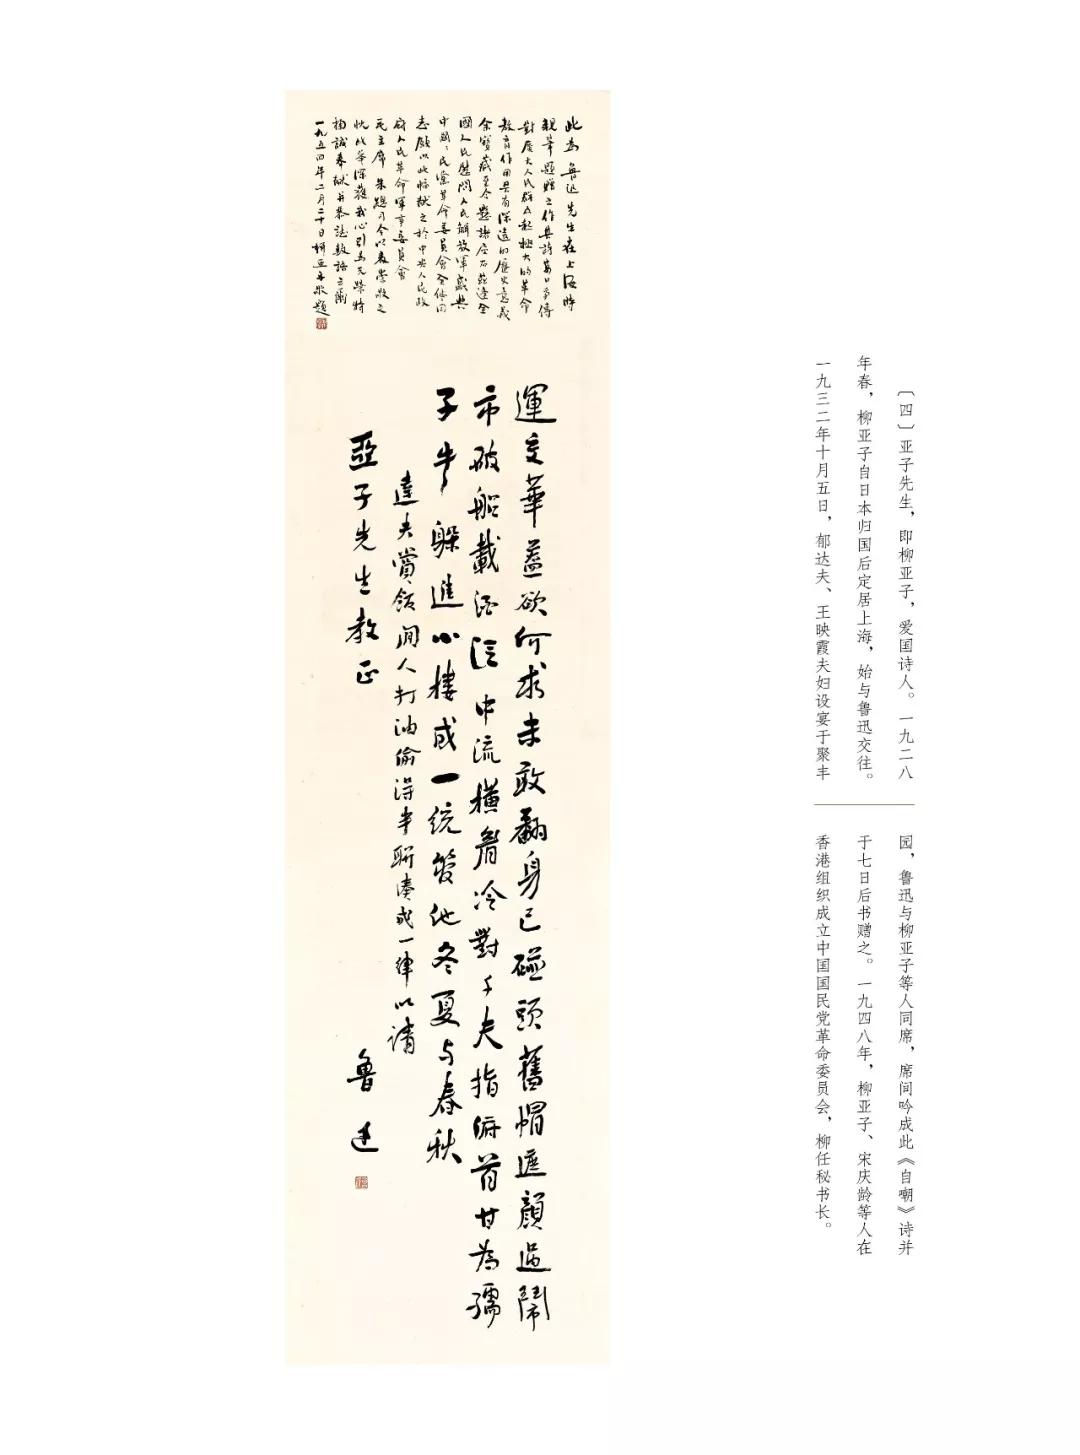 此為魯迅先生在上海時
親筆題贈之作其詩萬口爭傳
對廣大人民群众起極大的革命
教育作用具有深遠的歷史意義
余寶藏至今懸諸座右茲逢全
國人民慰問人民解放軍盛典
中國々民黨革命委員會全体同
志願以此幅献之於中央人民政
府人民革命軍事委員會
毛主席 朱總司令以表崇敬之
忱 深獲我心引為无榮特
掬誠奉献并恭誌數語云爾
一九五四年二月二十日柳亚子敬題
運交華蓋欲何求未敢翻身已碰頭舊帽遮顏過鬧
市破船載酒泛中流橫眉冷對千夫指俯首甘為孺
子牛躲進小樓成一統管他冬夏与春秋
達夫賞飯閒人打油偷得半聯湊成一律以請
亞子先生教正
魯迅
〔四〕亚子先生，即柳亚子，爱国诗人。一九二八
年春，柳亚子自日本归国后定居上海，始与鲁迅交往。
一九三二年十月五日，郁达夫、王映霞夫妇设宴于聚丰
园，鲁迅与柳亚子等人同席，席间吟成此《自嘲》诗并
于七日后书赠之。一九四八年，柳亚子、宋庆龄等人在
香港组织成立中国国民党革命委员会，柳任秘书长。